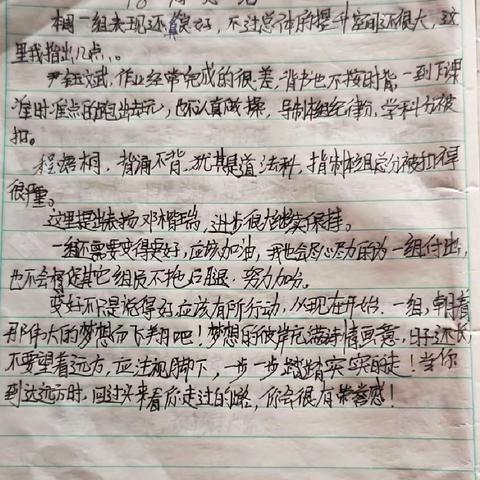 相一组表现还真良好,不过总体的提升空间还很大,这
里我指出几点、。
尹钰斌,作业经常完成的很差,背书也不按时背,一到下课
准时准点的跑出去玩,也不认真做操,导制本组纪律分,学科分被
扣。
程语桐,背诵不背,犹其是道法科,指制本组总分被扣得
很严重。
这里提出表扬邓楷瑞,进步很大继续保持。
一组还需要变得更好,应该加油,我也会尽心尽力的为一组付出,
也不会其它组员不拖后腿,努力加分。
变好不是说得好应该有所行动,从现在开始.一组,朝着
那伟大的梦想而飞翔吧!梦想的彼岸充满诗情画意,日子还长
不要望着远方,应注视脚下,一步一步踏踏实实的走!当你
到达远方时,回过头来看你走过的路,你会很有荣誉感!